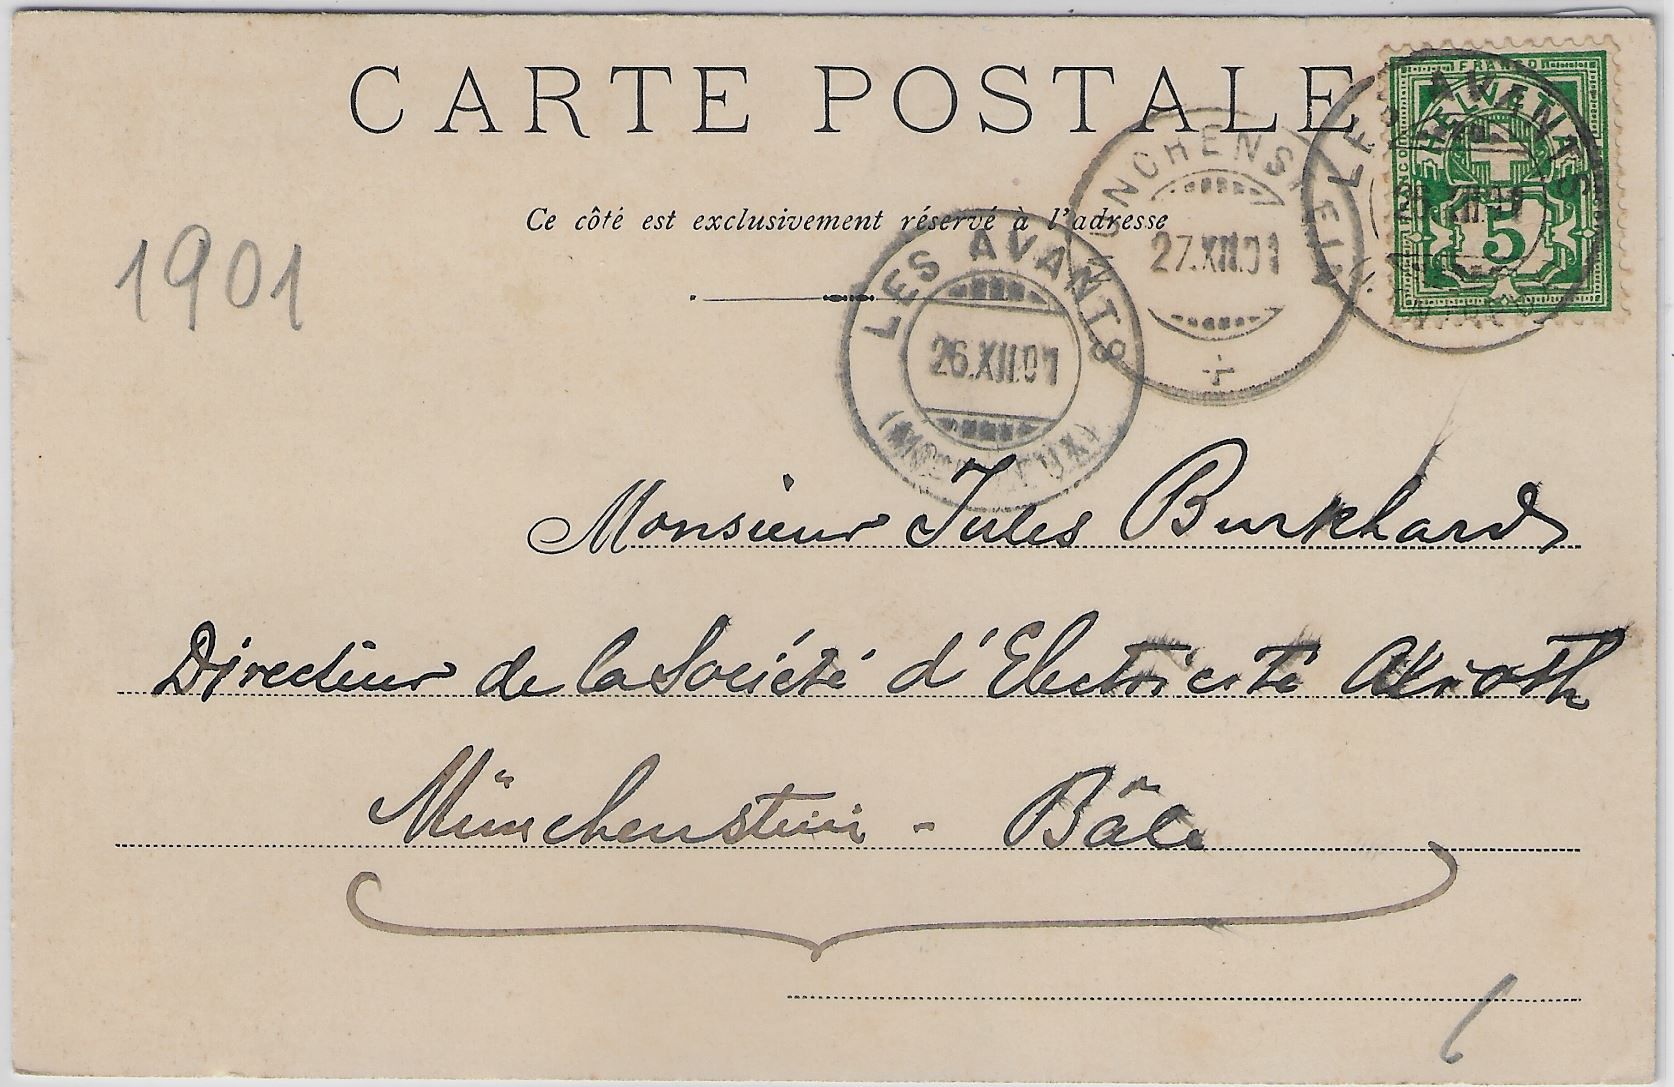 CARTE POSTALE
Ce côté est exclusivement réservé à l'adresse
1901
FRANCO
HELVETIA
5
LES AVANTS
26.XII.01
MÜNCHENSTEIN
27.XII.01
LES AVANTS
26.XII.01
(MONTREUX)
Monsieur Jules Burkhard
Directeur de la Société d'Electricité Alioth
Münchenstein - Bâle